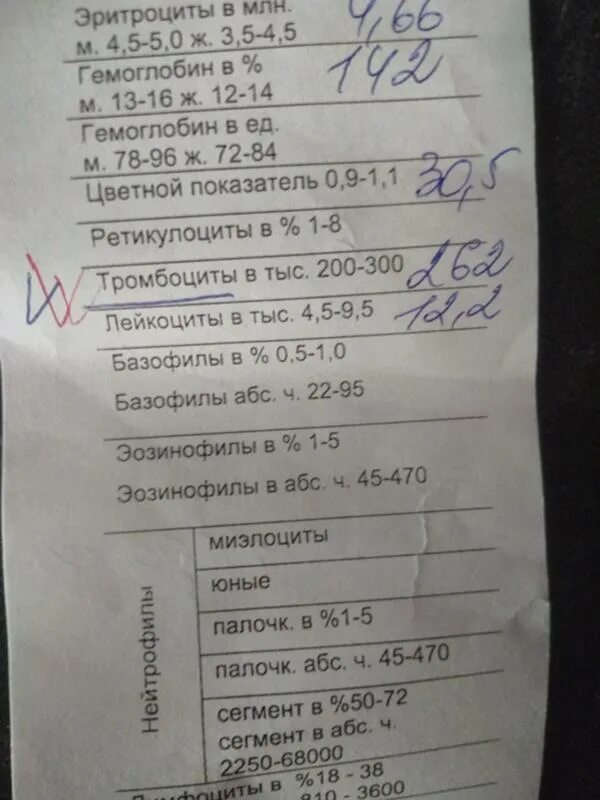 Эритроциты в млн.
м. 4,5-5,0 ж. 3,5-4,5 4,66
Гемоглобин в %
м. 13-16 ж. 12-14 142
Гемоглобин в ед.
м. 78-96 ж. 72-84
Цветной показатель 0,9-1,1 30,5
Ретикулоциты в % 1-8
Тромбоциты в тыс. 200-300 262
Лейкоциты в тыс. 4,5-9,5 12,2
Базофилы в % 0,5-1,0
Базофилы абс. ч. 22-95
Эозинофилы в % 1-5
Эозинофилы в абс. ч. 45-470
Нейтрофилы
миэлоциты
юные
палочк. в %1-5
палочк. абс. ч. 45-470
сегмент в %50-72
сегмент в абс. ч.
2250-68000
Лимфоциты в %18 - 38
810 - 3600